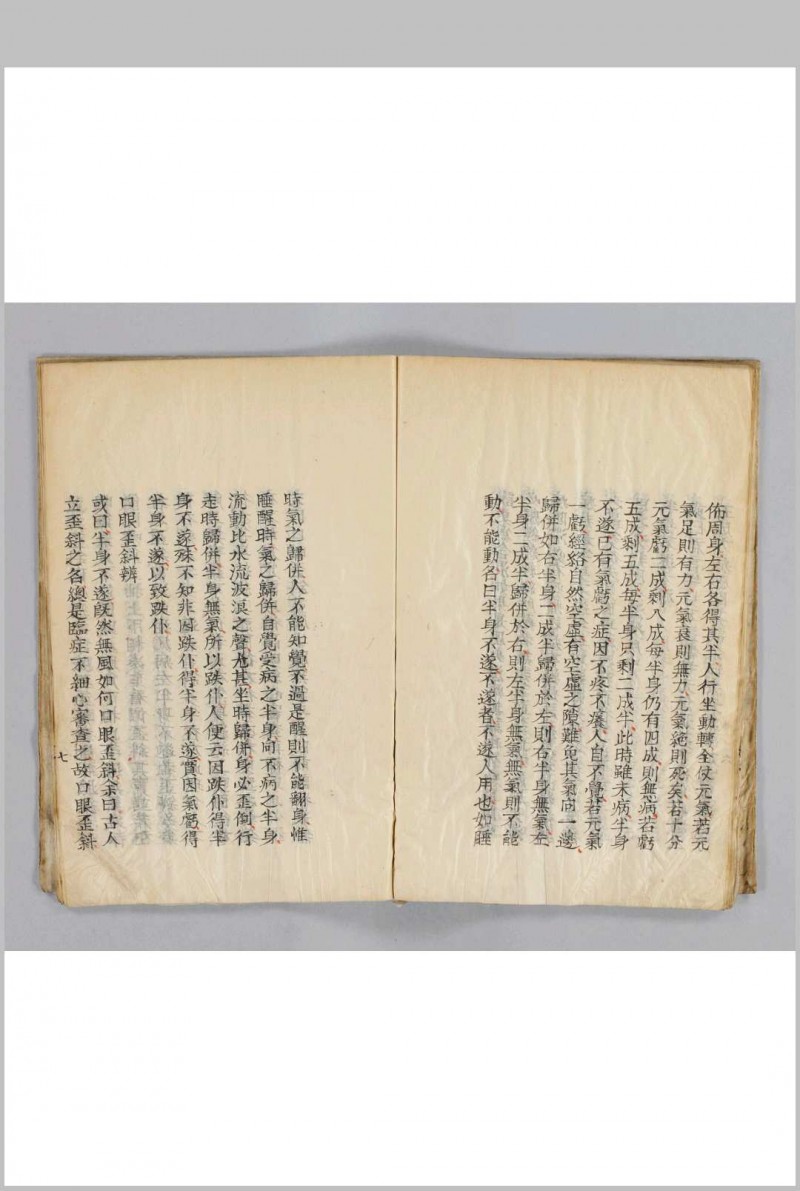 佈周身左右各得其半人行坐動轉全仗元氣若元
氣足則有力元氣衰則無力元氣絕則死矣若十分
元氣虧二成剩八成每半身仍有四成則無病若虧
五成剩五成每半身只剩二成半此時雖未病半身
不遂已有氣虧之症因不疼不癢人自不覺若元氣
一虧經絡自然空虛有空虛之隙難免其氣向一邊
歸併如右半身二成半歸併於左則右半身無氣左
半身二成半歸併於右則左半身無氣無氣則不能
動不能動名曰半身不遂不遂者不遂人用也如睡
時氣之歸併人不能知覺不過是醒則不能翻身惟
睡醒時氣之歸併自覺受病之半身向不病之半身
流動比水流波浪之聲尤甚坐時歸併身必歪倒行
走時歸併半身無氣所以跌仆人便云因跌仆得半
身不遂殊不知非因跌仆得半身不遂實因氣虧得
半身不遂以致跌仆
口眼歪斜辨
或曰半身不遂既然無風如何口眼歪斜余曰古人
立歪斜之名總是臨症不細心審查之故口眼歪斜
七